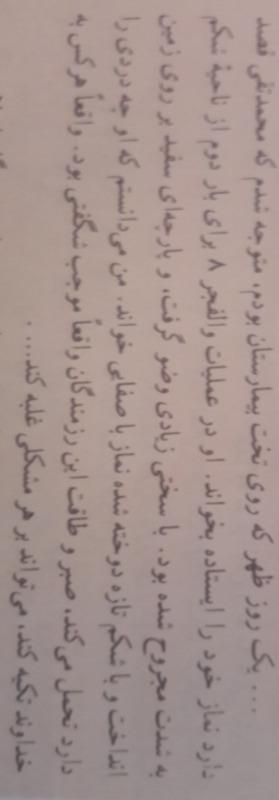 ... یک روز ظهر که روی تخت بیمارستان بودم، متوجه شدم که محمدتقی قصد
دارد نماز خود را ایستاده بخواند. او در عملیات والفجر ۸ برای بار دوم از ناحیهٔ شکم
به شدت مجروح شده بود. با سختی زیادی وضو گرفت، و پارچه‌ای سفید بر روی زمین
انداخت و با شکم تازه دوخته شده نماز با صفایی خواند. من می‌دانستم که او چه دردی را
دارد تحمل می‌کند، صبر و طاقت این رزمندگان واقعاً موجب شگفتی بود. واقعاً هر کس به
خداوند تکیه کند، می‌تواند بر هر مشکلی غلبه کند... .